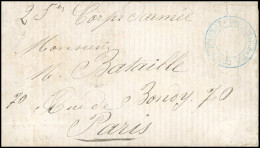 25e Corps d'armée
Monsieur
M. Bataille
70 Rue de Bondy 70
Paris